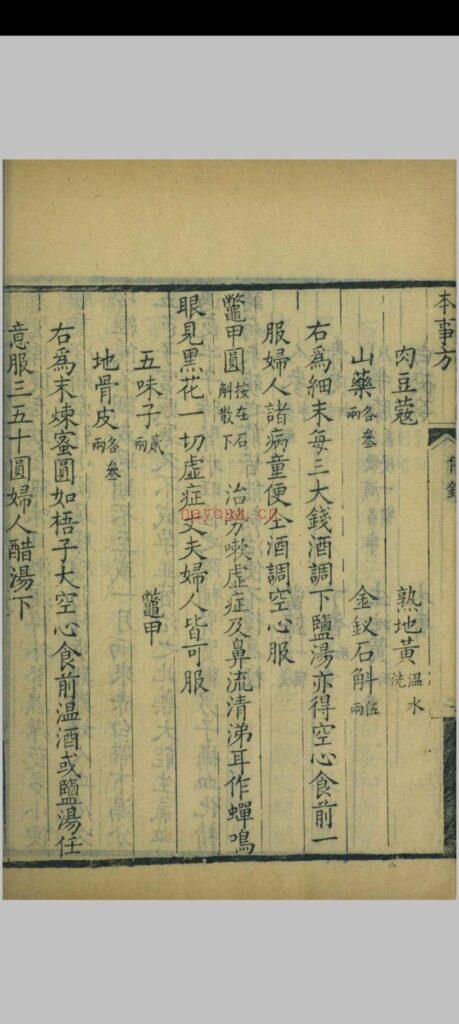 本事方
肉豆蔻 熟地黄温水洗
山藥各叁兩 金釵石斛伍兩
右為細末每三大錢酒調下鹽湯亦得空心食前一
服婦人諸病童便仝酒調空心服
鼈甲圓按在石斛散下 治勞嗽虛症及鼻流清涕耳作蟬鳴
眼見黑花一切虛症丈夫婦人皆可服
五味子貳兩 鼈甲
地骨皮各叁兩
右為末煉蜜圓如梧子大空心食前温酒或鹽湯任
意服三五十圓婦人醋湯下
nayona.cn